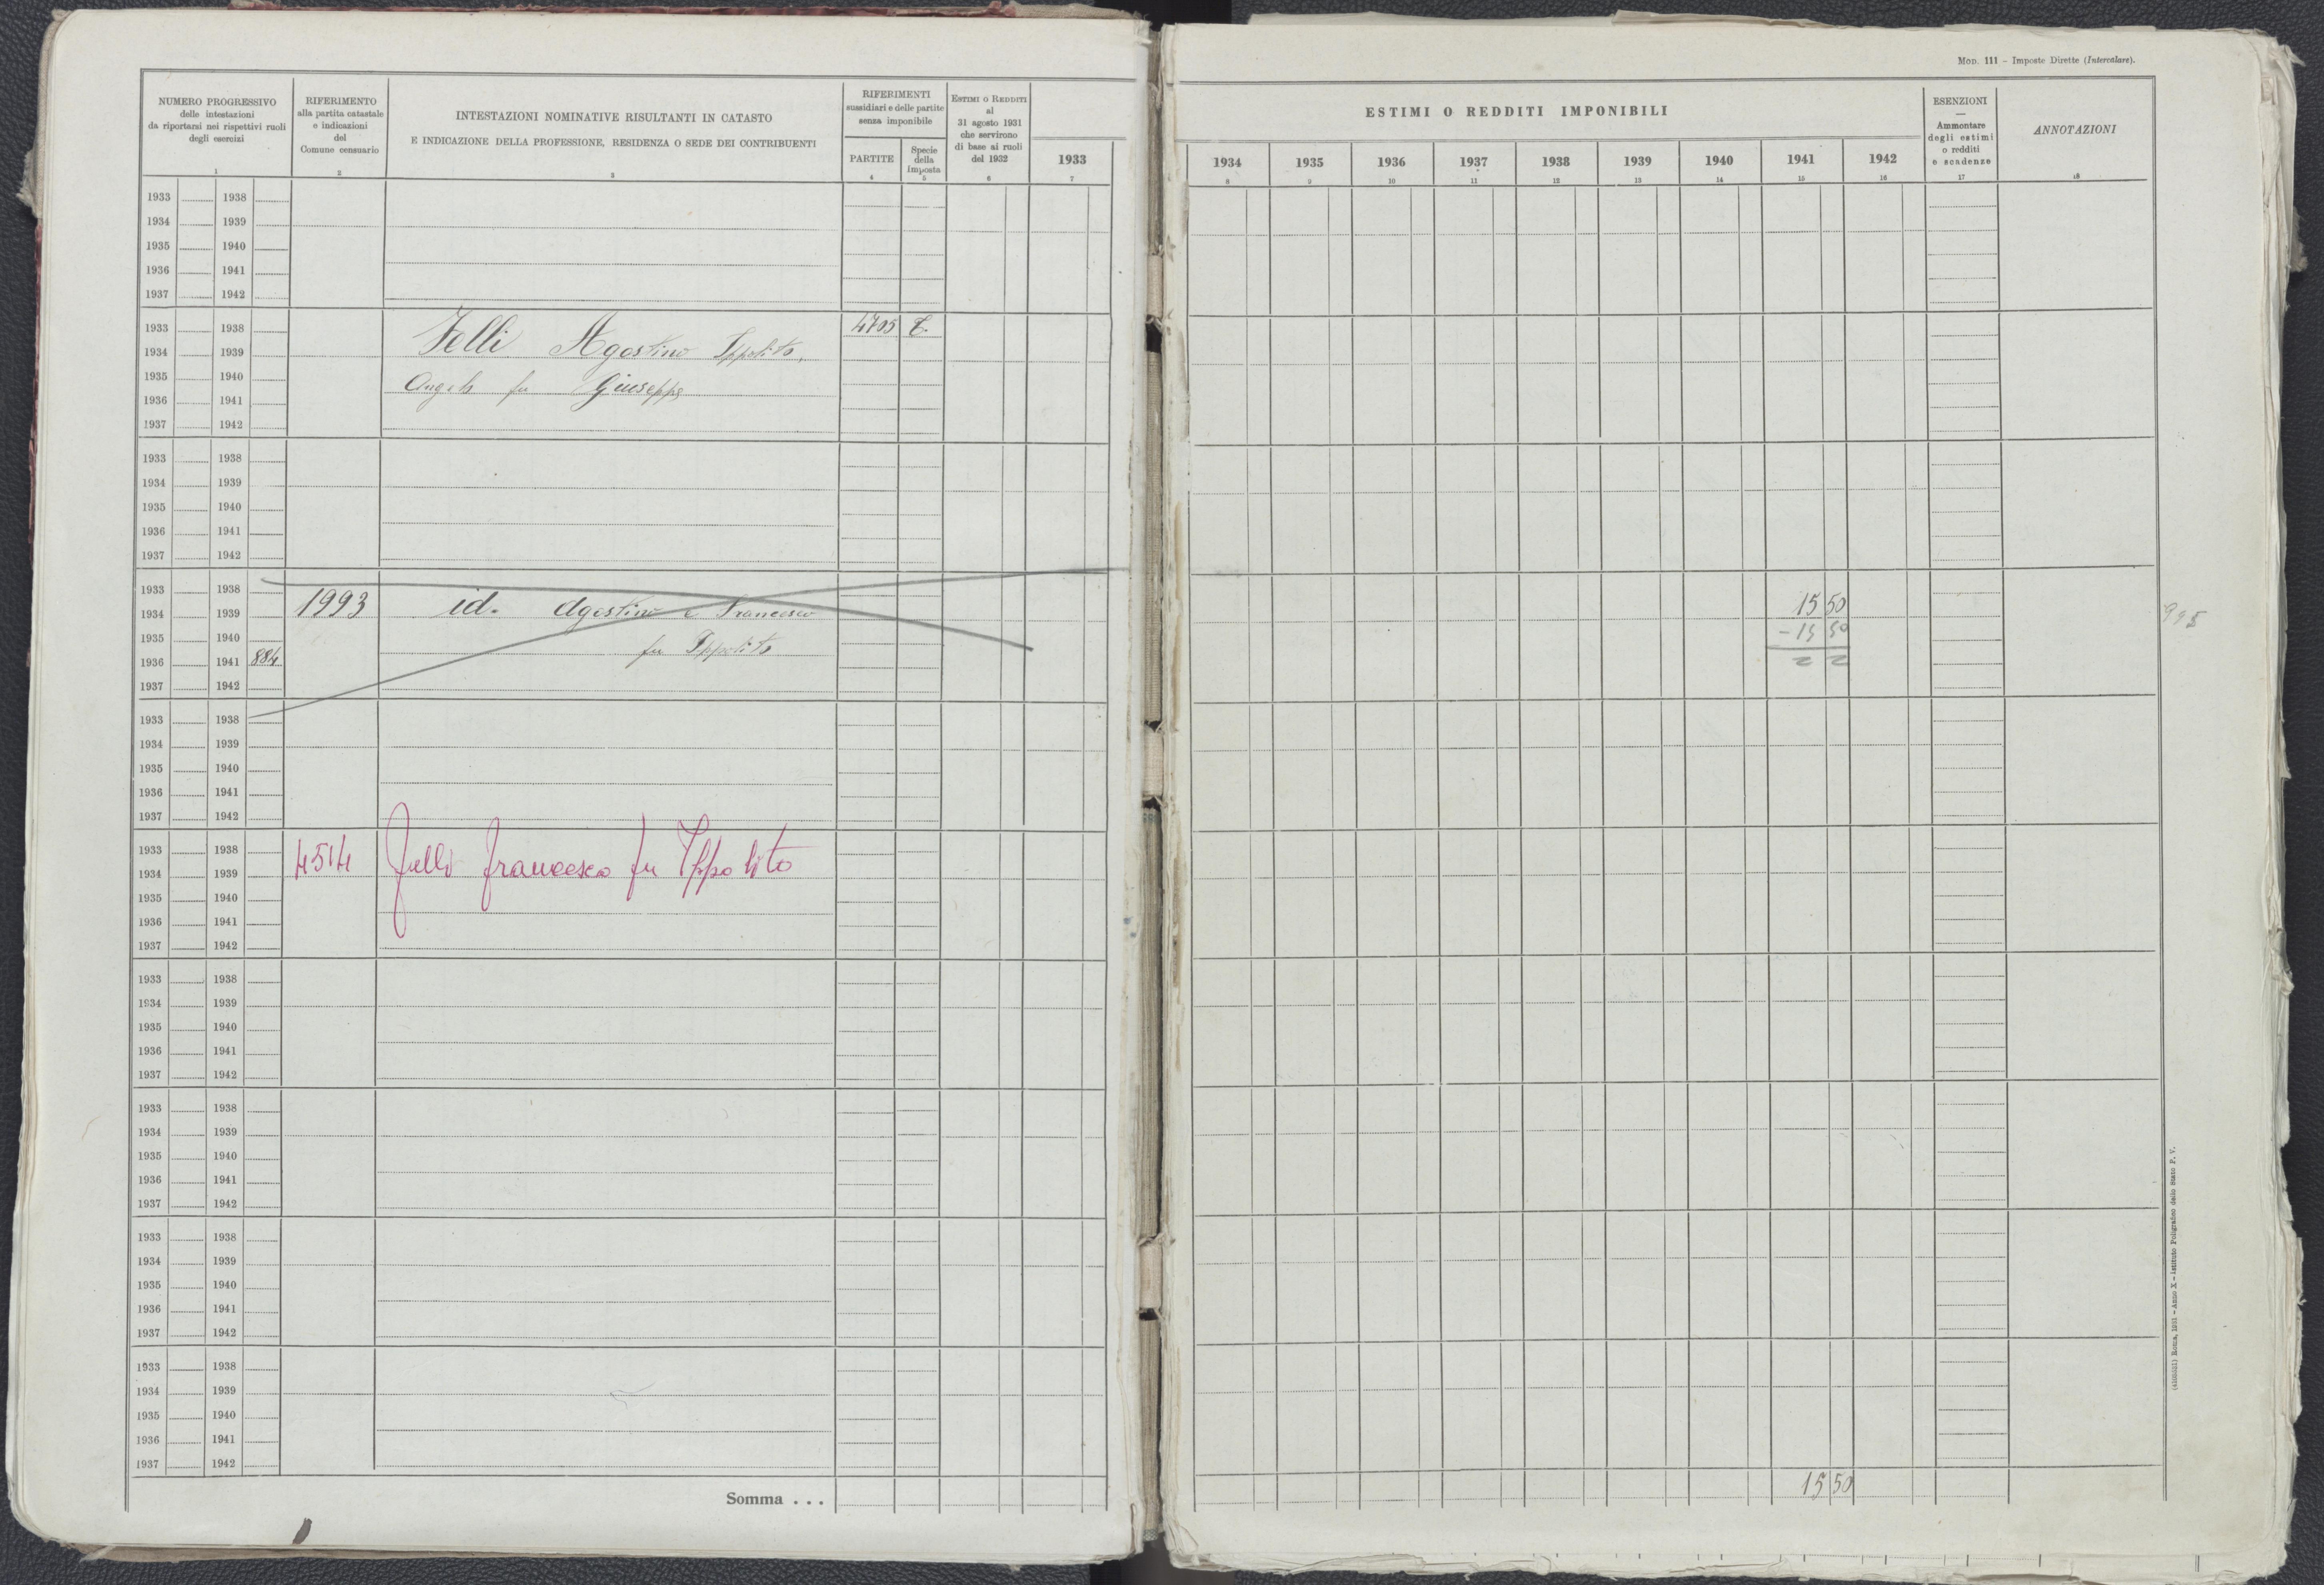 Mod. 111 - Imposte Dirette (Intercalare).
NUMERO PROGRESSIVO
delle intestazioni
da riportarsi nei rispettivi ruoli
degli esercizi
1
RIFERIMENTO
alla partita catastale
e indicazioni
del
Comune censuario
2
INTESTAZIONI NOMINATIVE RISULTANTI IN CATASTO
E INDICAZIONE DELLA PROFESSIONE, RESIDENZA O SEDE DEI CONTRIBUENTI
3
RIFERIMENTI
sussidiari e delle partite
senza imponibile
PARTITE
4
Specie
della
imposta
5
Estimi o Redditi
al
31 agosto 1931
che servirono
di base ai ruoli
del 1932
6
1933
7
ESTIMI O REDDITI IMPONIBILI
1934 1935 1936 1937 1938 1939 1940 1941 1942
8 9 10 11 12 13 14 15 16
ESENZIONI
—
Ammontare
degli estimi
o redditi
e scadenze
17
ANNOTAZIONI
18
1933 1938
1934 1939
1935 1940
1936 1941
1937 1942
1933 1938 4705 T.
1934 1939 Felli Agostino Ippolito,
1935 1940 Angelo fu Giuseppe
1936 1941
1937 1942
1933 1938
1934 1939
1935 1940
1936 1941
1937 1942
1933 1938
1934 1939 1993 id. Agostino e Francesco 15 50 995
1935 1940 fu Ippolito - 15 50
1936 1941 884
1937 1942
1933 1938
1934 1939
1935 1940
1936 1941
1937 1942
1933 1938
1934 1939 4514 Felli Francesco fu Ippolito
1935 1940
1936 1941
1937 1942
1933 1938
1934 1939
1935 1940
1936 1941
1937 1942
1933 1938
1934 1939
1935 1940
1936 1941
1937 1942
1933 1938
1934 1939
1935 1940
1936 1941
1937 1942
1933 1938
1934 1939
1935 1940
1936 1941
1937 1942
Somma . . . 15 50
Roma, 1931 - Anno X - Istituto Poligrafico dello Stato P. V.